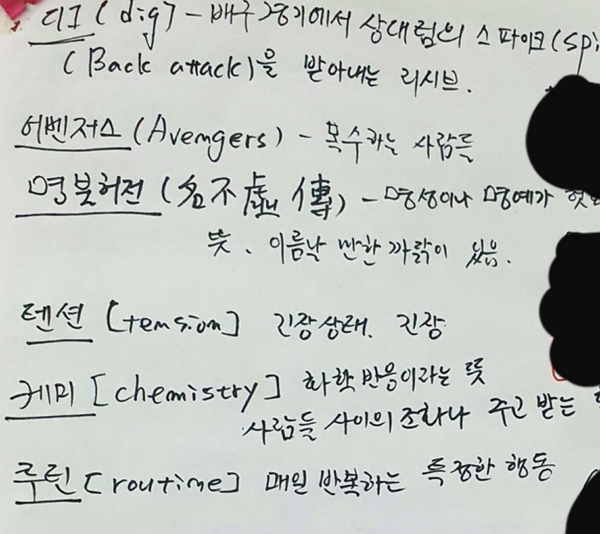 디그(dig) - 배구 경기에서 상대팀의 스파이크(spi
(Back attack)을 받아내는 리시브.
어벤저스(Avengers) - 복수하는 사람들
명불허전(名不虛傳) - 명성이나 명예가 헛
뜻. 이름날 만한 까닭이 있음.
텐션 [tension] 긴장상태. 긴장
케미 [chemistry] 화학 반응이라는 뜻
사람들 사이의 조화나 주고 받는
루틴 [routine] 매일 반복하는 특정한 행동